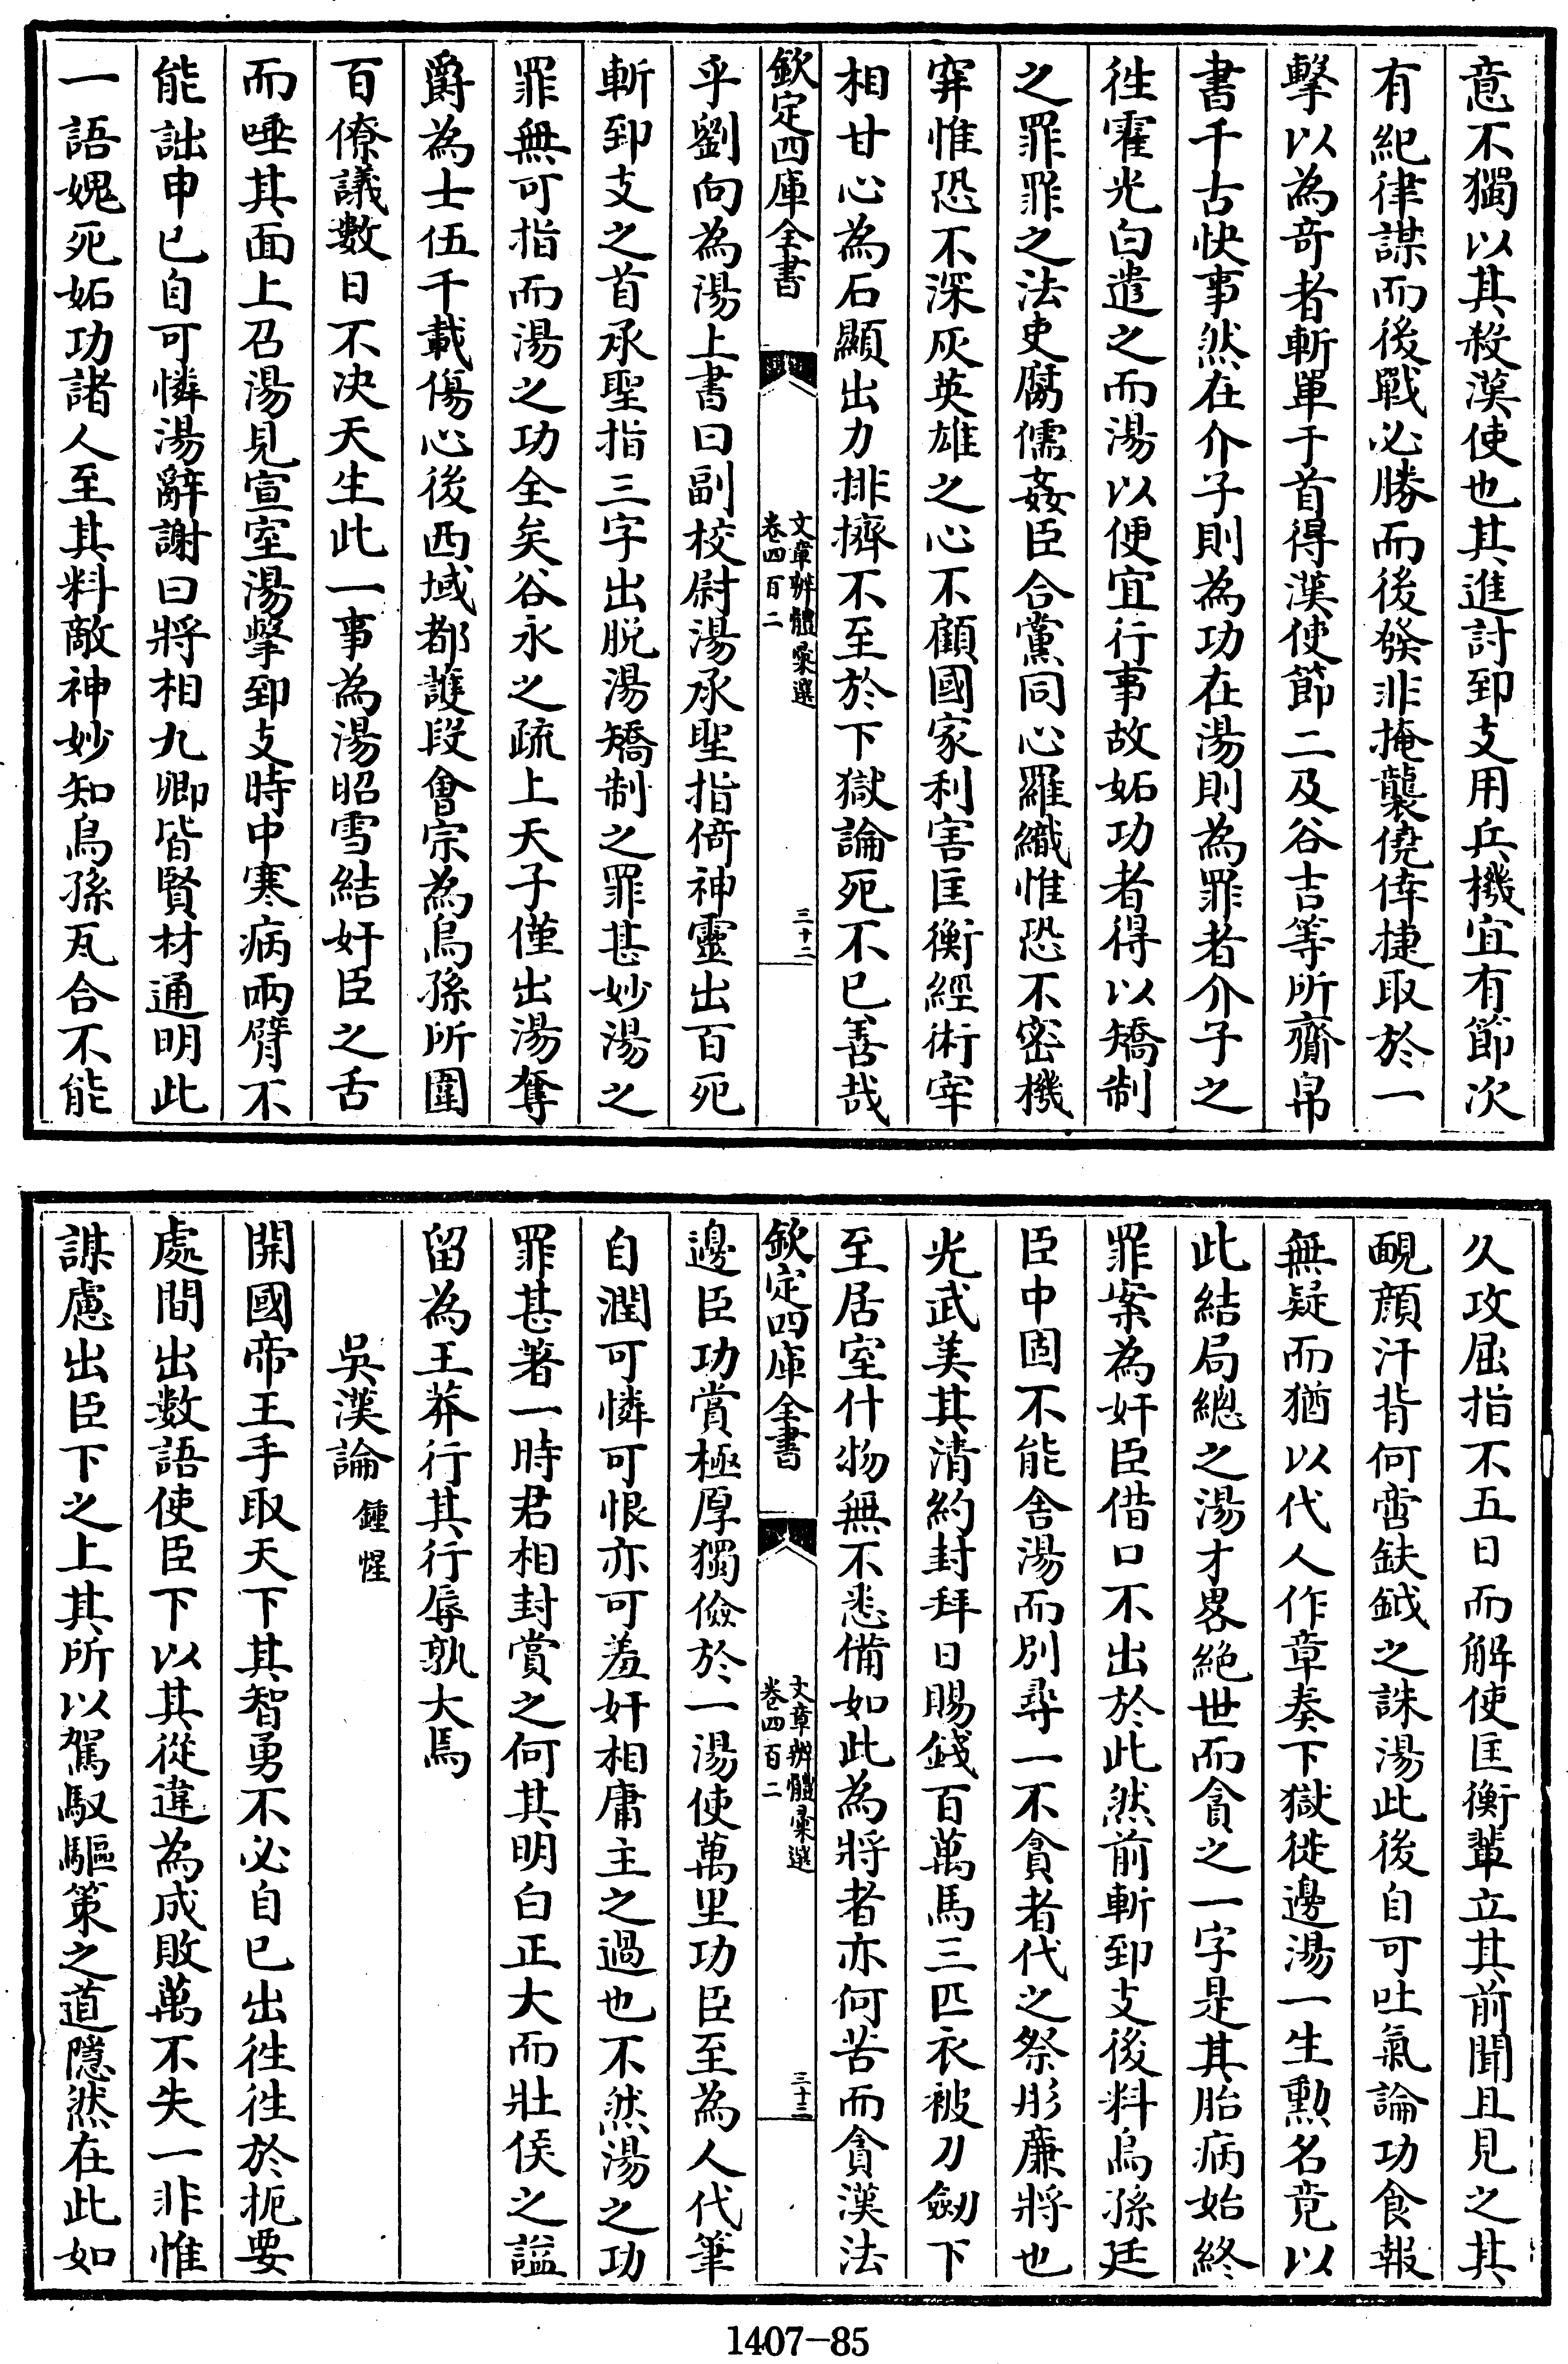 意不獨以其殺漢使也其進討郅支用兵機宜有節次
有紀律謀而後戰必勝而後發非掩襲僥倖捷取於一
擊以為奇者斬單于首得漢使節二及谷吉等所齎帛
書千古快事然在介子則為功在湯則為罪者介子之
徃霍光白遣之而湯以便宜行事故妬功者得以矯制
之罪罪之法吏腐儒姦臣合黨同心羅織惟恐不密機
穽惟恐不深灰英雄之心不顧國家利害匡衡經術宰
相甘心為石顯出力排擠不至於下獄論死不已善哉
欽定四庫全書
文章辨體彙選
卷四百二
三十二
乎劉向為湯上書曰副校尉湯承聖指倚神靈出百死
斬郅支之首承聖指三字出脫湯矯制之罪甚妙湯之
罪無可指而湯之功全矣谷永之疏上天子僅出湯奪
爵為士伍千載傷心後西域都護段會宗為烏孫所圍
百僚議數日不決天生此一事為湯昭雪結奸臣之舌
而唾其面上召湯見宣室湯擊郅支時中寒病兩臂不
能詘申已自可憐湯辭謝曰將相九卿皆賢材通明此
一語媿死妬功諸人至其料敵神妙知烏孫瓦合不能
久攻屈指不五日而解使匡衡輩立其前聞且見之其
靦顏汗背何啻鈇鉞之誅湯此後自可吐氣論功食報
無疑而猶以代人作章奏下獄徙邊湯一生勲名竟以
此結局總之湯才畧絕世而貪之一字是其胎病始終
罪案為奸臣借口不出於此然前斬郅支後料烏孫廷
臣中固不能舍湯而別尋一不貪者代之祭肜廉將也
光武美其清約封拜日賜錢百萬馬三匹衣被刀劒下
至居室什物無不悉備如此為將者亦何苦而貪漢法
欽定四庫全書
文章辨體彙選
卷四百二
三十三
邊臣功賞極厚獨儉於一湯使萬里功臣至為人代筆
自潤可憐可恨亦可羞奸相庸主之過也不然湯之功
罪甚著一時君相封賞之何其明白正大而壯侯之諡
留為王莽行其行辱孰大焉
吳漢論 鍾惺
開國帝王手取天下其智勇不必自已出徃徃於扼要
處間出數語使臣下以其從違為成敗萬不失一非惟
謀慮出臣下之上其所以駕馭驅策之道隱然在此如
1407-85